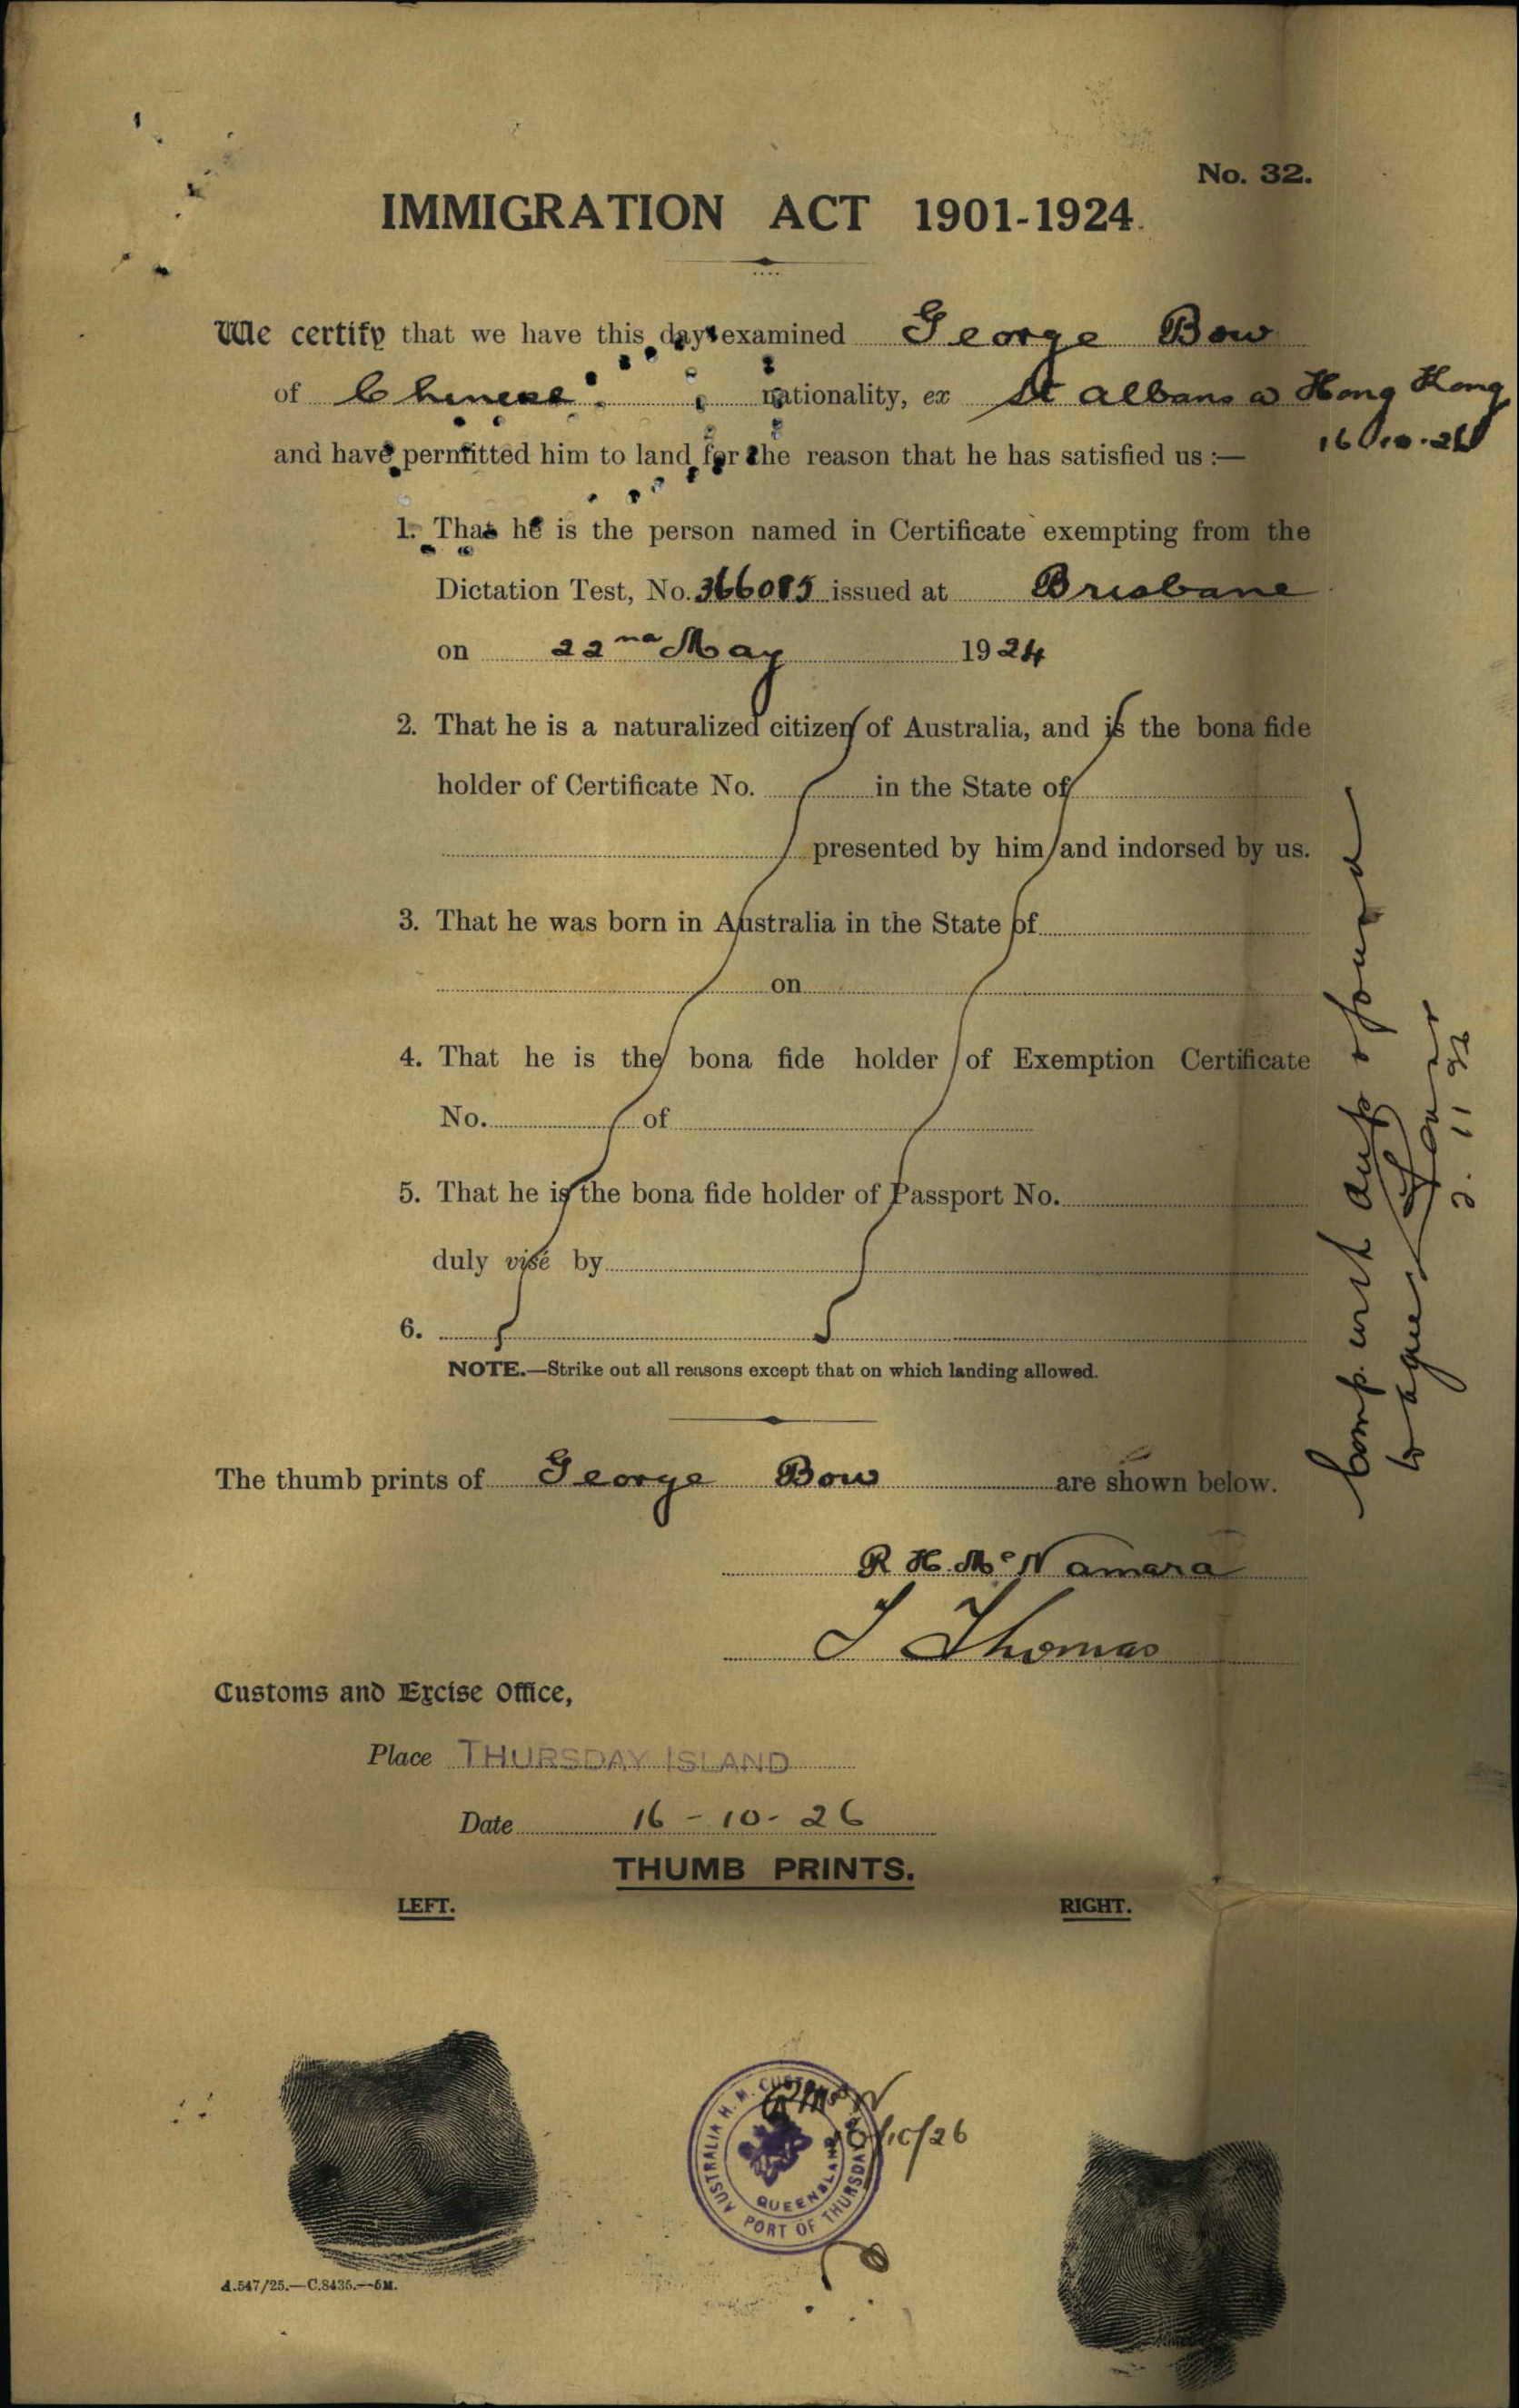 No. 32.
IMMIGRATION ACT 1901-1924.
We certify that we have this day examined George Bow
of Chinese nationality, ex St Albans @ Hong Kong
16/10.26
and have permitted him to land for the reason that he has satisfied us :—
1. That he is the person named in Certificate exempting from the
Dictation Test, No. 366085 issued at Brisbane
on 22nd May 1924
2. That he is a naturalized citizen of Australia, and is the bona fide
holder of Certificate No. in the State of
presented by him and indorsed by us.
3. That he was born in Australia in the State of
on
4. That he is the bona fide holder of Exemption Certificate
No. of
5. That he is the bona fide holder of Passport No.
duly visé by
6.
NOTE.—Strike out all reasons except that on which landing allowed.
The thumb prints of George Bow are shown below.
R H. McNamara
J Thomas
Customs and Excise Office,
Place THURSDAY ISLAND
Date 16 - 10 - 26
THUMB PRINTS.
LEFT. RIGHT.
AUSTRALIA H. M. CUSTOMS
QUEENSLAND
PORT OF THURSDAY
/10/26
A.547/25.—C.8435.—5M.
Comp. with dup & found
to agree
2. 11 26